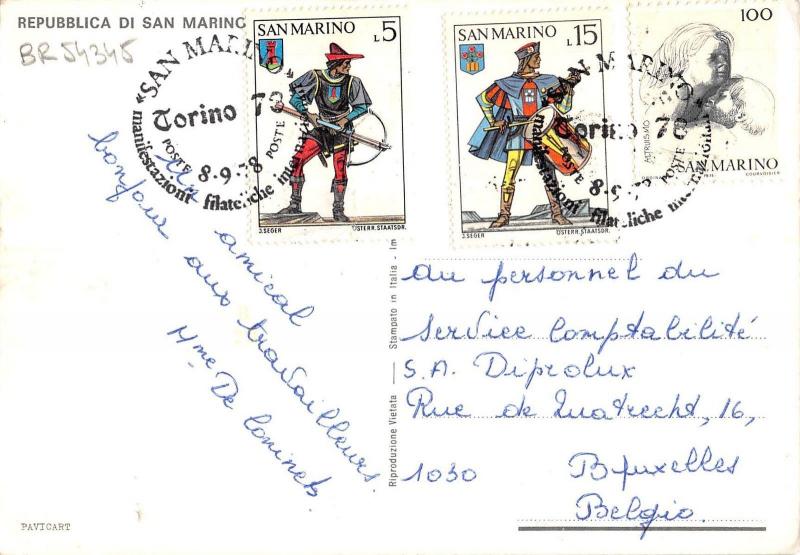 REPUBBLICA DI SAN MARINO
BR54345
SAN MARINO
L5
J.SEGER ÖSTERR.STAATSDR.
SAN MARINO
L15
J.SEGER ÖSTERR.STAATSDR.
100
ALTRUISMO
SAN MARINO
COURVOISIER
"SAN MARINO"
Torino 78
POSTE
8.9.78
manifestazioni filateliche
"SAN MARINO"
Torino 78
POSTE
8.9.78
manifestazioni filateliche
Un amical
bonjour aux travailleurs.
Mme De
au personnel du
Service Comptabilité
S.A. Diprolux
Rue de Quatrecht, 16,
1030 Bruxelles
Belgio.
Riproduzione Vietata — Stampato in Italia - Im
PAVICART